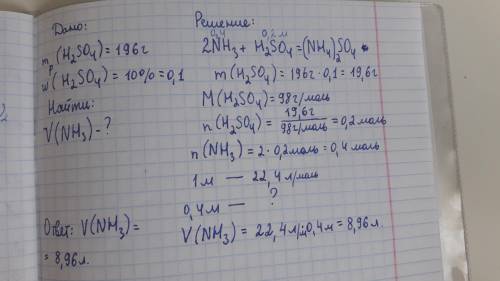 Дано:
m р (H₂SO₄) = 196г
w (H₂SO₄) = 10% = 0,1
Найти:
V(NH₃) - ?
Ответ: V(NH₃) =
= 8,96 л.
Решение:
0,4 0,2 м
2NH₃ + H₂SO₄ = (NH₄)₂SO₄
m (H₂SO₄) = 196г · 0,1 = 19,6г
M (H₂SO₄) = 98г/моль
n (H₂SO₄) = 19,6г / 98г/моль = 0,2 моль
n (NH₃) = 2 · 0,2 моль = 0,4 моль
1м — 22,4 л/моль
0,4м — ?
V(NH₃) = 22,4 л/ · 0,4м = 8,96 л.